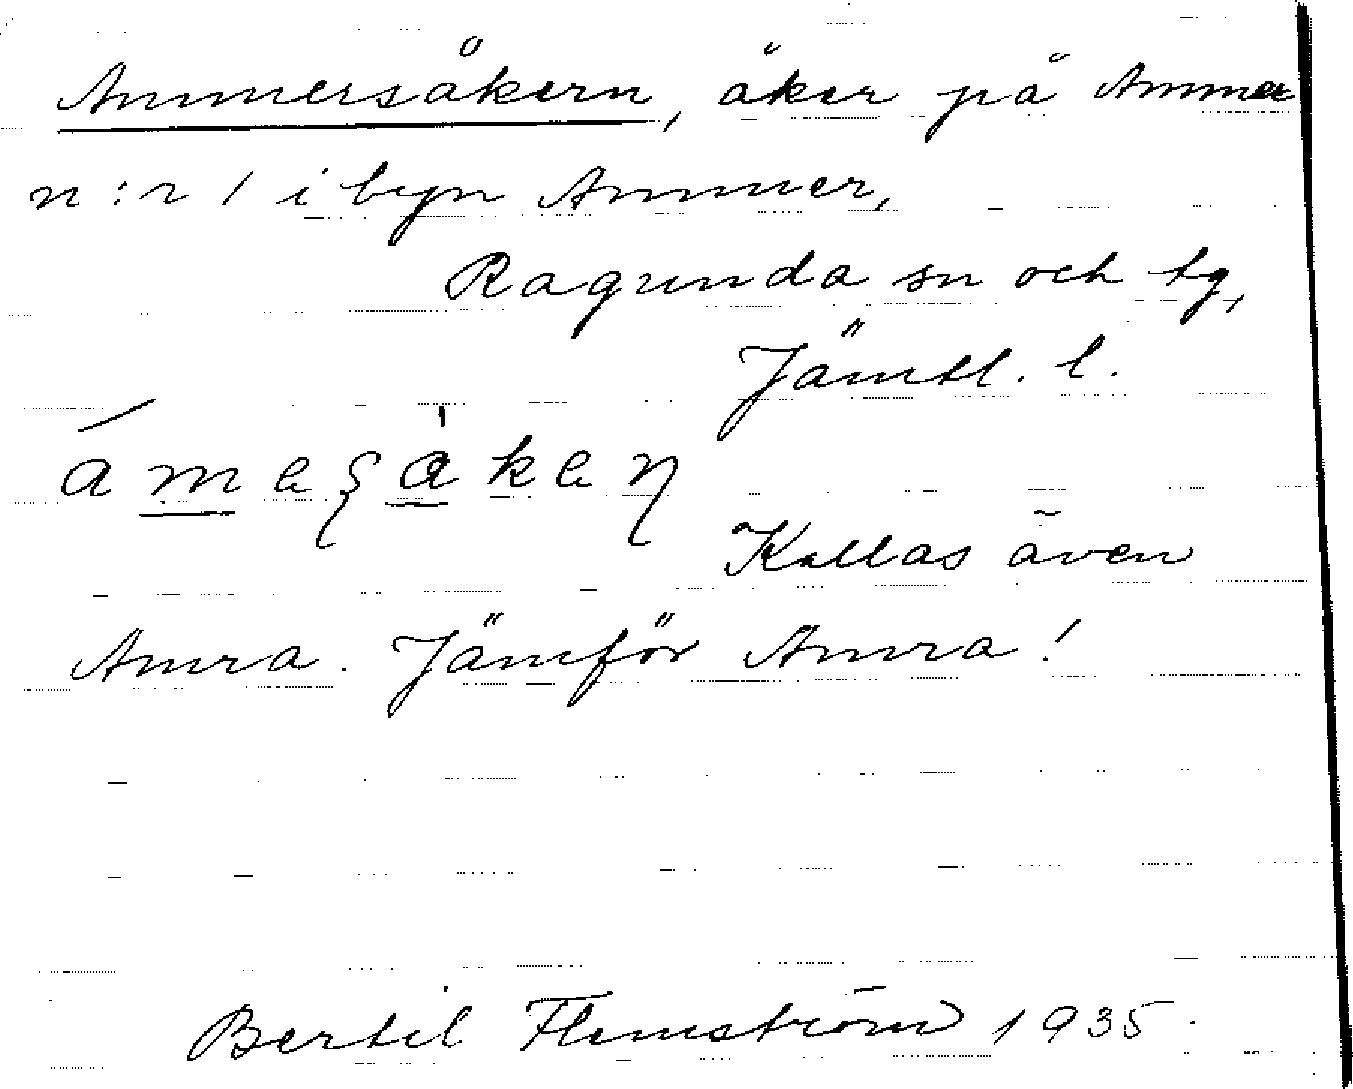 Ammersåkern, åker på Ammer
n:r 1 i byn Ammer,
Ragunda sn och tg,
Jämtl. l.
Kallas även
Amra. Jämför Amra!
Bertil Flemström 1935.